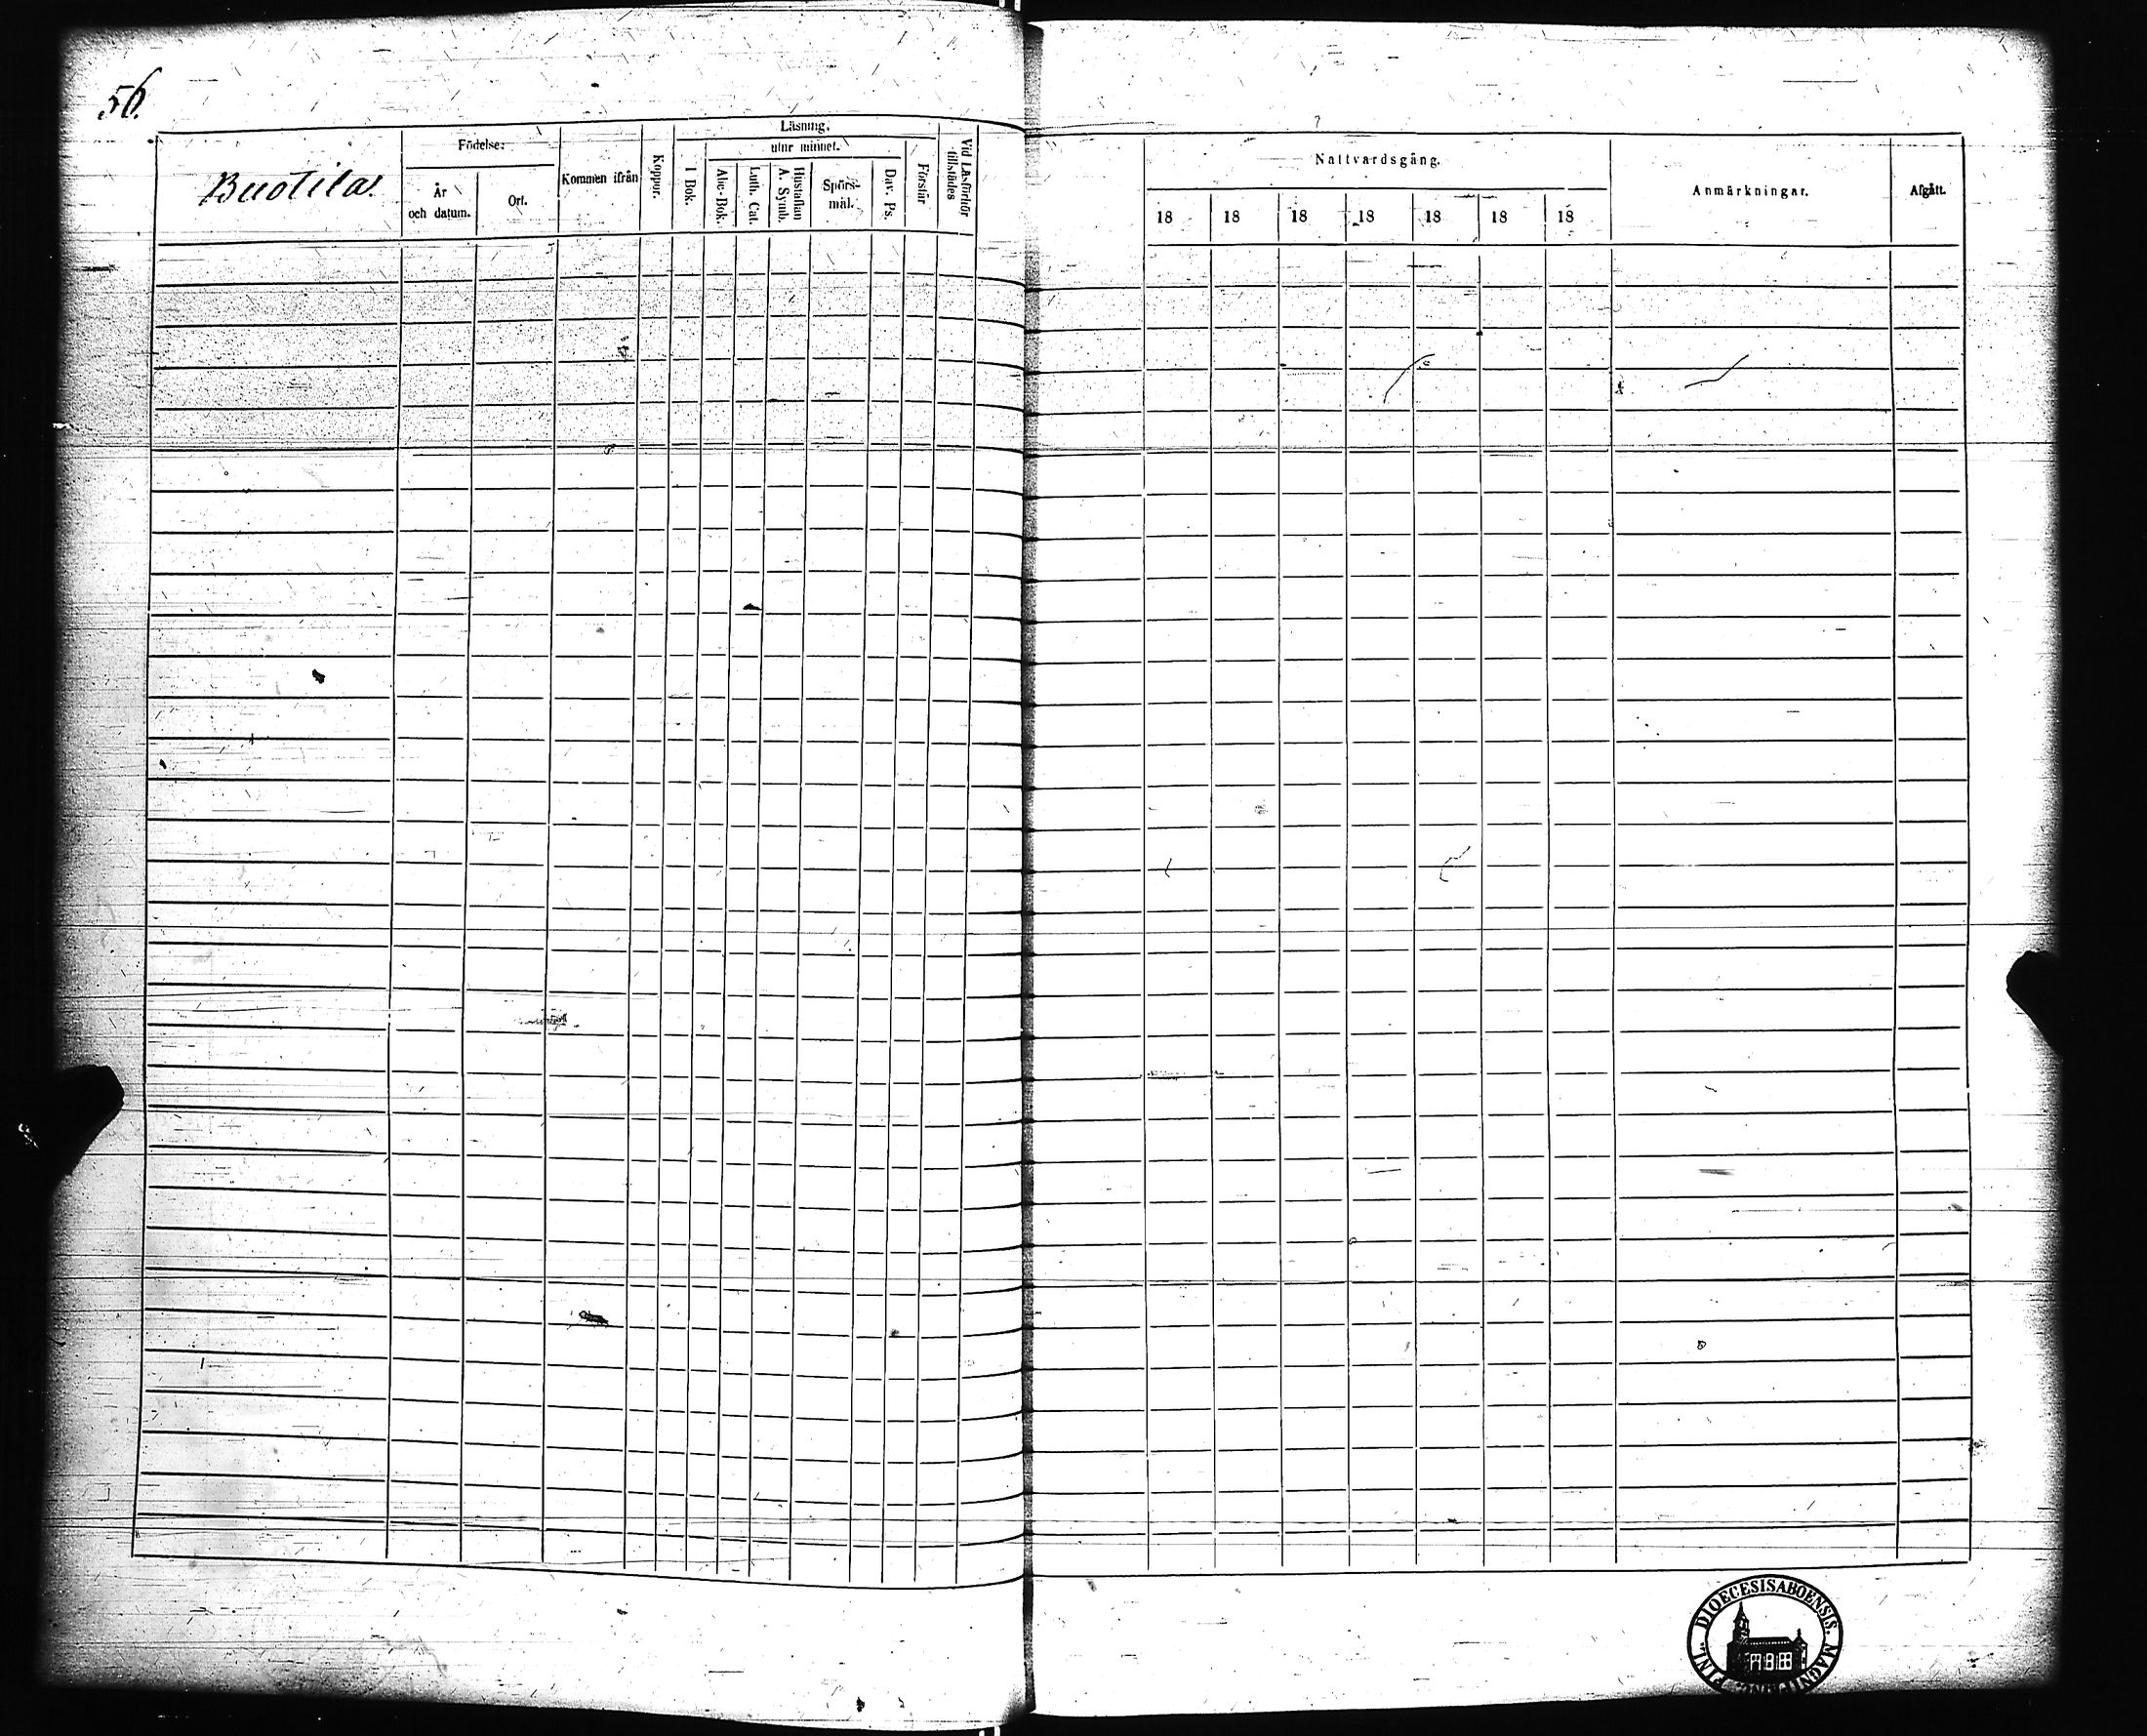 56.
Buotila.
Födelse:
År
och datum.
Ort.
Kommen ifrån
Koppor.
Läsning.
I Bok.
utur minnet.
Abc-Bok.
Luth. Cat.
Hustaflan
A. Symb.
Spörs-
mål.
Dav. Ps.
Förstår
Vid Läsförhör
tillstädes
Nattvardsgång.
18 18 18 18 18 18 18
Anmärkningar.
Afgått.
DIOECESIS ABOENSIS. MAGNI PRINC. FINL.